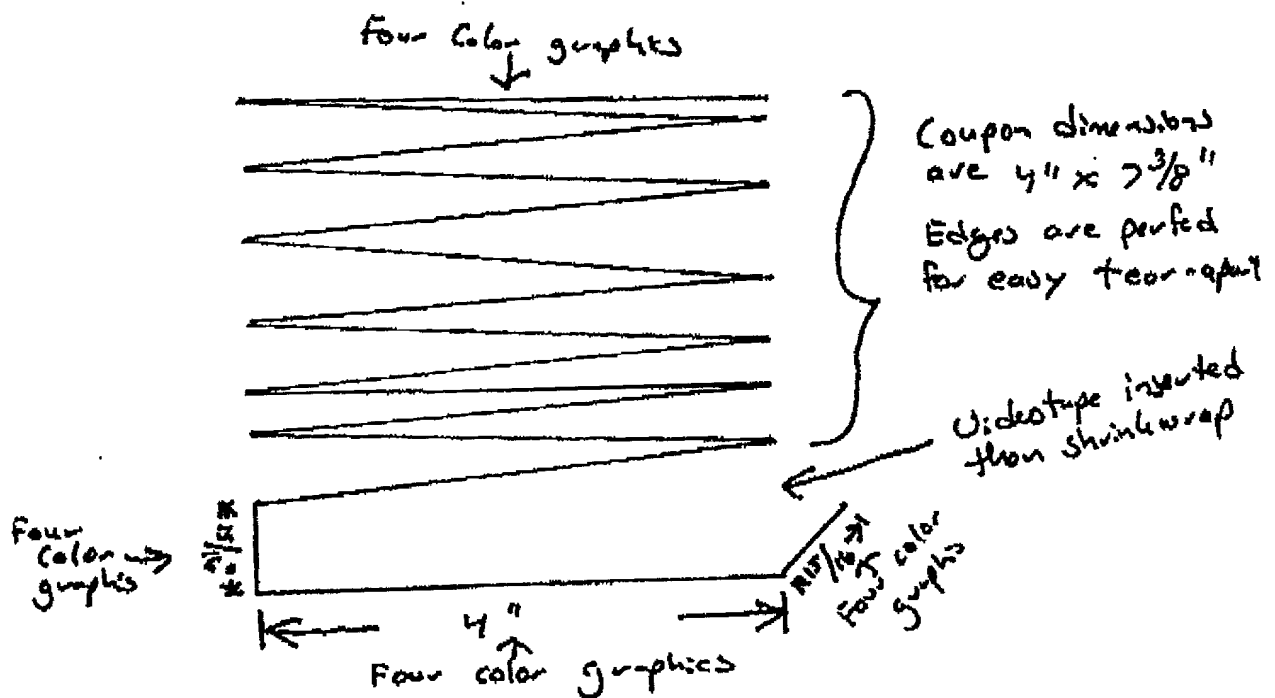 Four Color graphics
Coupon dimensions
are 4" x 7 3/8"
Edges are perfed
for easy tear-apart
Videotape inserted
than shrinkwrap
Four
Color
graphis
15/16
15/16
Four color
graphics
4"
Four color graphics